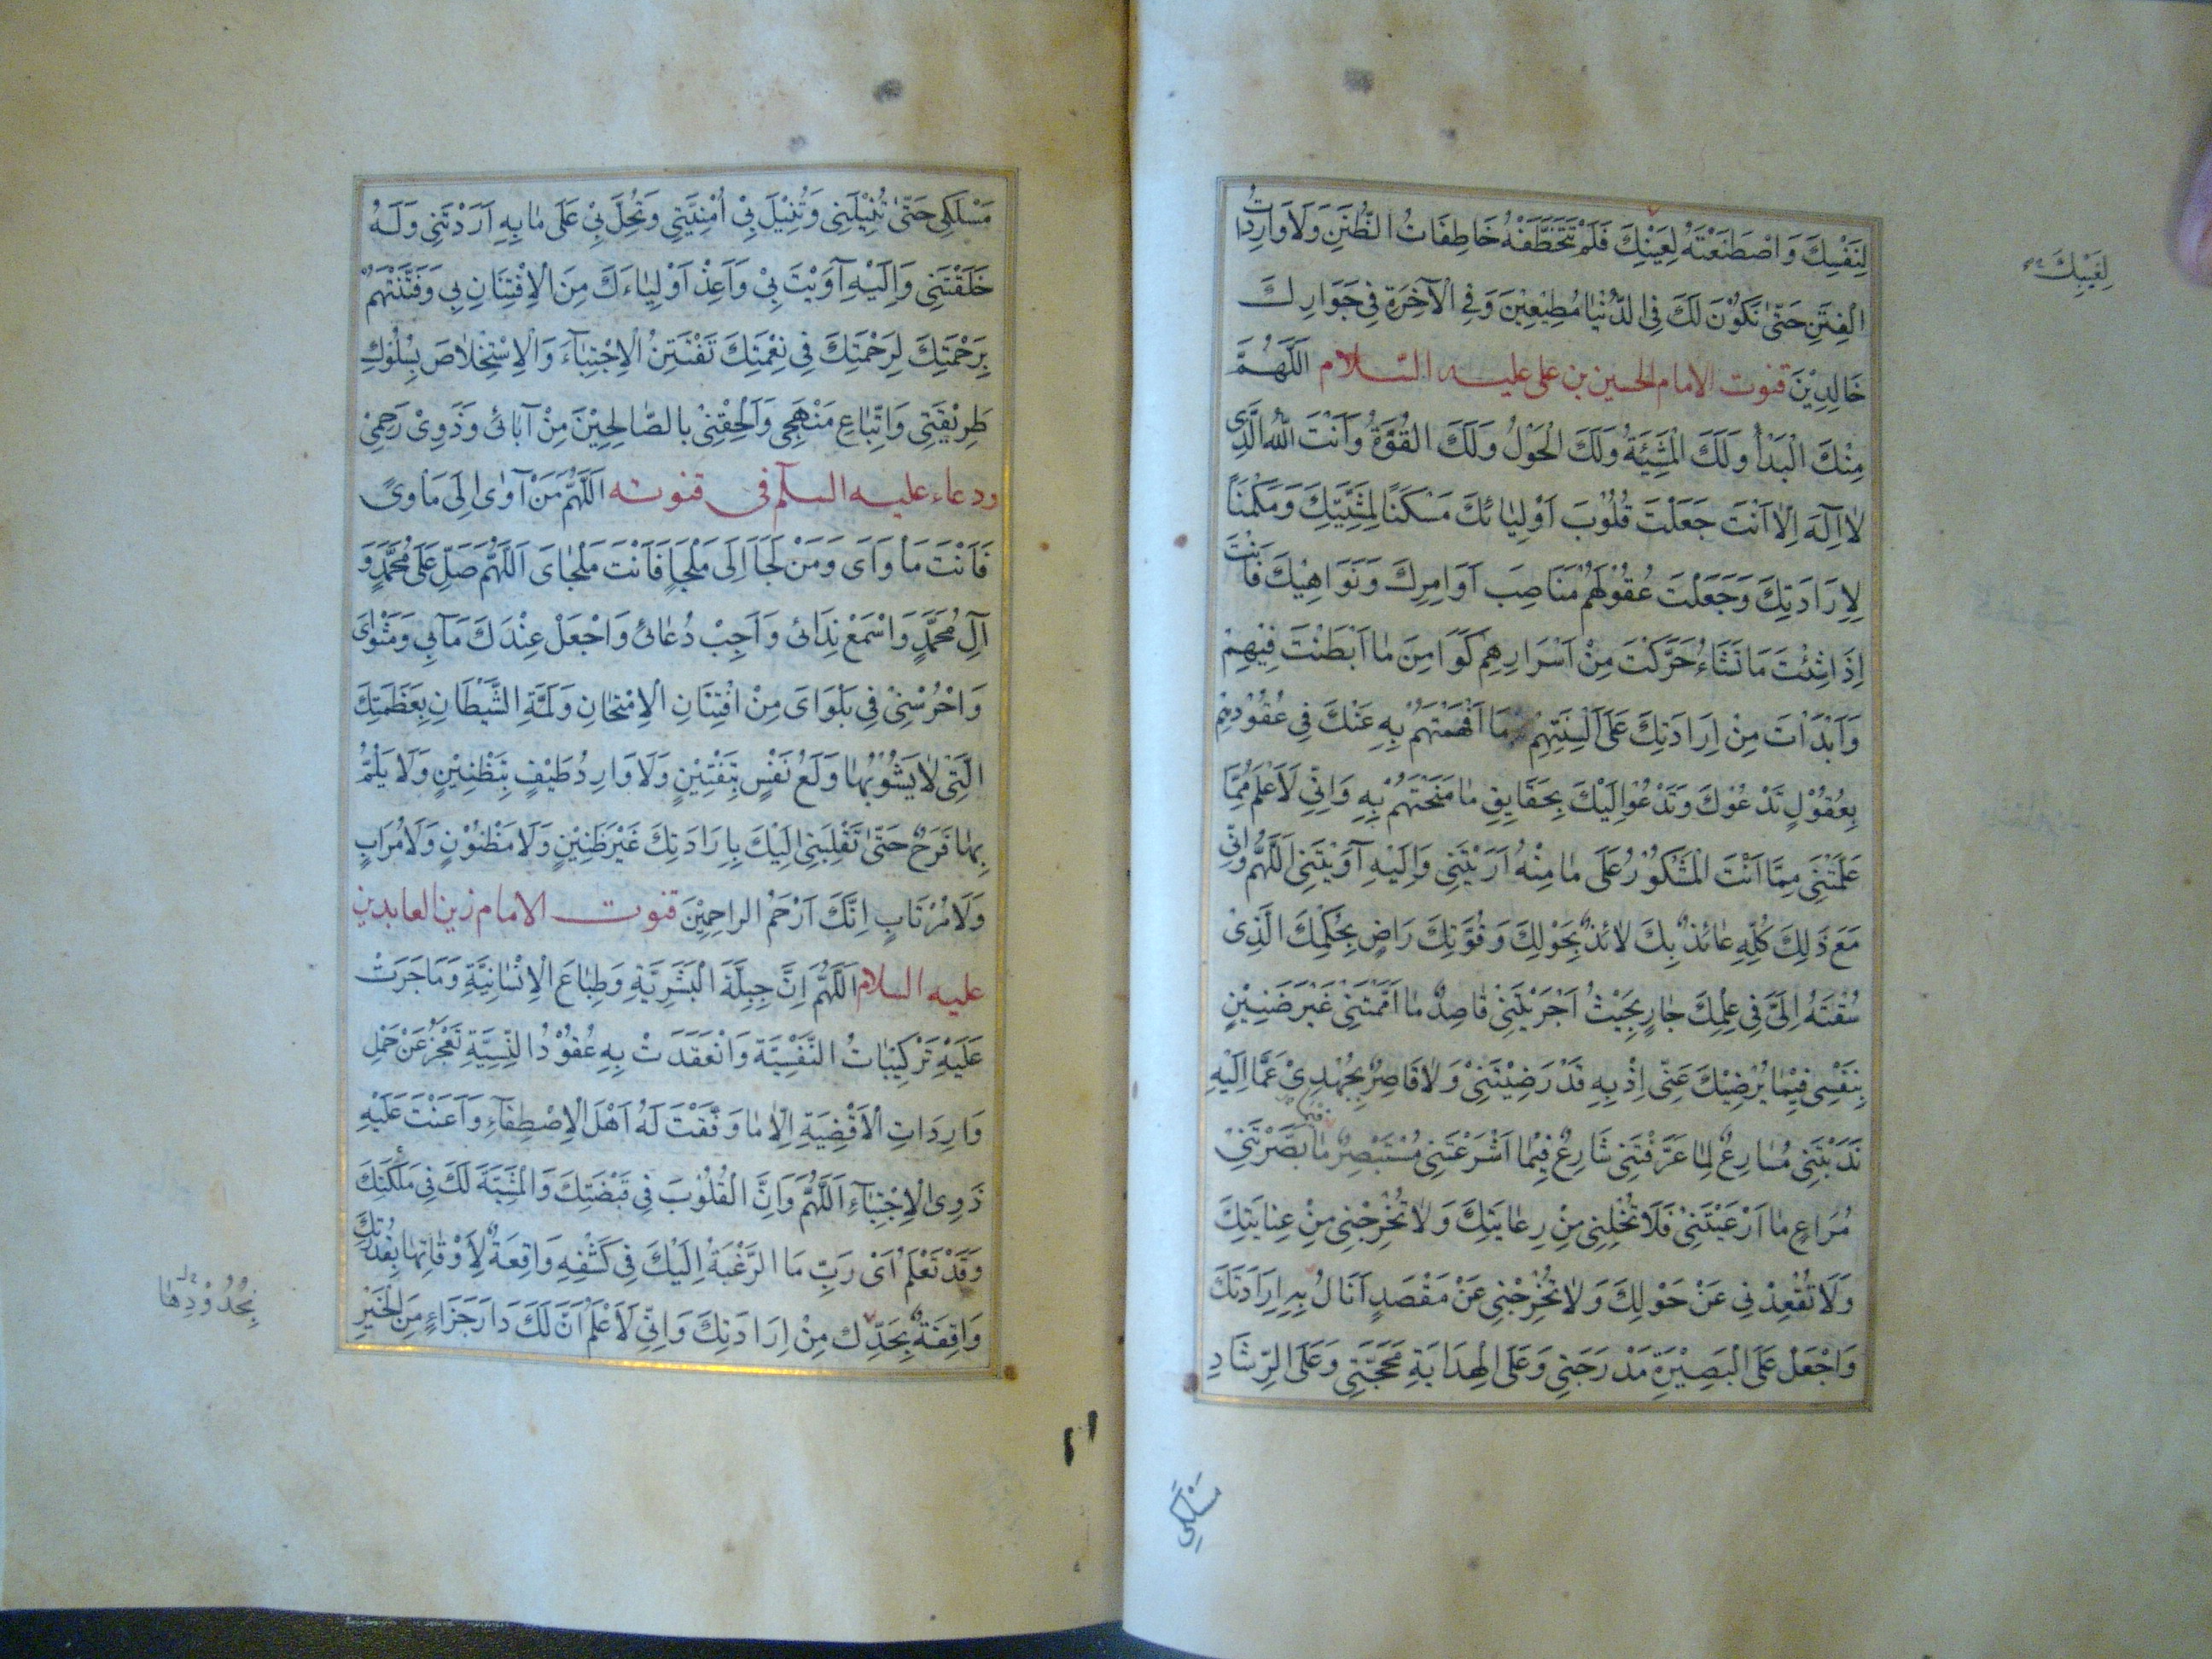 لِنَفْسِكَ وَاصْطَنَعْتَهُ لِعَيْنِكَ فَلَمْ تَتَخَطَّفْهُ خَاطِفَاتُ الظُّنَنِ وَلَا وَارِدَاتُ
لِغَيْبِكَ
الْفِتَنِ حَتّىٰ نَكُوْنَ لَكَ فِي الدُّنْيٰا مُطِيْعِيْنَ وَفِي الْآخِرَةِ فِي جَوَارِكَ
خَالِدِيْنَ قنوت الامام الحسين بن علی علیه السلام اَللّٰهُمَّ
مِنْكَ الْبَدْأُ وَلَكَ الْمَشِيَّةُ وَلَكَ الْحَوْلُ وَلَكَ الْقُوَّةُ وَاَنْتَ اللهُ الَّذِى
لٰا اِلٰهَ اِلّٰا اَنْتَ جَعَلْتَ قُلُوْبَ اَوْلِيٰائِكَ مَسْكَنًا لِمَشِيَّتِكَ وَمَكْمَنًا
لِاِرَادَتِكَ وَجَعَلْتَ عُقُوْلَهُمْ مَنَاصِبَ اَوَامِرِكَ وَنَوَاهِيْكَ فَاَنْتَ
اِذَا شِئْتَ مَا تَشَاءُ حَرَّكْتَ مِنْ اَسْرَارِهِمْ كَوَامِنَ مٰا اَبْطَنْتَ فِيْهِمْ
وَاَبْدَاْتَ مِنْ اِرَادَتِكَ عَلَى اَلْسِنَتِهِمْ مَا اَفْهَمْتَهُمْ بِهِ عَنْكَ فِي عُقُوْدِهِمْ
بِعُقُوْلٍ تَدْعُوْكَ وَتَدْعُوْا اِلَيْكَ بِحَقَايِقِ مٰا مَنَحْتَهُمْ بِهِ وَاِنِّي لَاَعْلَمُ مِمَّا
عَلَّمْتَنِي مِمَّا اَنْتَ الْمَشْكُوْرُ عَلَى مٰا مِنْهُ اَرَيْتَنِي وَاِلَيْهِ آوَيْتَنِي اَللّٰهُمَّ وَاِنِّي
مَعَ ذٰلِكَ كُلِّهِ عٰائِذٌ بِكَ لٰائِذٌ بِحَوْلِكَ وَقُوَّتِكَ رَاضٍ بِحُكْمِكَ الَّذِىْ
سُقْتَهُ اِلَىَّ فِي عِلْمِكَ جٰارٍ بِحَيْثُ اَجْرَيْتَنِيْ قٰاصِدٌ مٰا اَمَّمْتَنِيْ غَيْرَ ضَنِيْنٍ
بِنَفْسِي فِيْمٰا يُرْضِيْكَ عَنِّى اِذْ بِهِ قَدْ رَضِيْتَنِيْ وَلٰا قَاصِرٌ بِجُهْدِىْ عَمَّا اِلَيْهِ
نَدَبْتَنِي مُسٰارِعٌ لِمٰا عَرَّفْتَنِي شَارِعٌ فِيْمٰا اَشْرَعْتَنِي مُسْتَبْصِرٌ مٰا بَصَّرْتَنِيْ
مُرَاعٍ مٰا اَرْعَيْتَنِيْ فَلَا تُخْلِنِي مِنْ رِعٰايَتِكَ وَلٰا تُخْرِجْنِي مِنْ عِنٰايَتِكَ
وَلَا تُقْعِدْنِي عَنْ حَوْلِكَ وَلٰا تُخْرِجْنِي عَنْ مَقْصَدٍ اَنَالُ بِهِ اِرَادَتَكَ
وَاجْعَلْ عَلَى الْبَصِيْرَةِ مَدْرَجَتِي وَعَلَى الْهِدَايَةِ مَحَجَّتِي وَعَلَى الرَّشَادِ
مَسْلَكِي
مَسْلَكِي حَتّىٰ تُنِيْلَنِي وَتُنِيْلَ بِيْ اُمْنِيَّتِي وَتُحِلَّ بِيْ عَلَى مٰا بِهِ اَرَدْتَنِي وَلَهُ
خَلَقْتَنِي وَاِلَيْهِ آوَيْتَ بِيْ وَاَعِذْ اَوْلِيٰاءَكَ مِنَ الْاِفْتِنَانِ بِي وَفَتِّنْهُمْ
بِرَحْمَتِكَ لِرَحْمَتِكَ فِي نِعْمَتِكَ تَفْتِيْنَ الْاِجْتِبٰآءَ وَالْاِسْتِخْلٰاصَ بِسُلُوْكِ
طَرِيْقَتِي وَاتِّبٰاعِ مَنْهَجِي وَاَلْحِقْنِيْ بِالصّٰالِحِيْنَ مِنْ آبٰائِي وَذَوِىْ رَحِمِيْ
ودعاء علیه السلم فی قنوته اَللّٰهُمَّ مَنْ آوٰى اِلَى مَاْوىً
فَاَنْتَ مَاْوَاىَ وَمَنْ لَجَاَ اِلَى مَلْجَاٍ فَاَنْتَ مَلْجٰاىَ اَللّٰهُمَّ صَلِّ عَلَى مُحَمَّدٍ وَ
آلِ مُحَمَّدٍ وَاسْمَعْ نِدَائِي وَاَجِبْ دُعٰائِي وَاجْعَلْ عِنْدَكَ مَآبِي وَمَثْوٰاىَ
وَاحْرُسْنِيْ فِي بَلْوَاىَ مِنْ افْتِنَانِ الْاِمْتِحٰانِ وَلَمَّةِ الشَّيْطَانِ بِعَظَمَتِكَ
الَّتِيْ لٰا يَشُوْبُهٰا وَلَعُ نَفْسٍ بِتَفْتِيْنٍ وَلَا وَارِدُ طَيْفٍ بِتَظْنِيْنٍ وَلَا يَلُمُّ
بِهٰا فَرَحٌ حَتّىٰ تَقْلِبَنِي اِلَيْكَ بِاِرَادَتِكَ غَيْرَ ظَنِيْنٍ وَلَا مَظْنُوْنٍ وَلَا مُرَابٍ
وَلَا مُرْتَابٍ اِنَّكَ اَرْحَمُ الرَاحِمِيْنَ قنوت الامام زین العابدین
علیه السلام اَللّٰهُمَّ اِنَّ جِبِلَّةَ الْبَشَرِيَّةِ وَطِبٰاعَ الْاِنْسٰانِيَّةِ وَمَا جَرَتْ
عَلَيْهِ تَرْكِيْبٰاتُ النَّفْسِيَّةِ وَانْعَقَدَتْ بِهِ عُقُوْدُ النِّسِيَّةِ تَعْجِزُ عَنْ حَمْلِ
وَارِدَاتِ الْاَقْضِيَةِ اِلّٰا مٰا وَفَّقْتَ لَهُ اَهْلَ الْاِصْطِفٰآءِ وَاَعَنْتَ عَلَيْهِ
ذَوِى الْاِجْتِبٰآءِ اَللّٰهُمَّ وَاِنَّ الْقُلُوْبَ فِي قَبْضَتِكَ وَالْمَشِيَّةَ لَكَ فِي مَلَكَتِكَ
وَقَدْ تَعْلَمُ اَىْ رَبِّ مَا الرَّغْبَةُ اِلَيْكَ فِي كَشْفِهِ وَاقِعَةٌ لِاَوْقٰاتِهٰا بِقُدْرَتِكَ
بِحُدُوْدِهٰا
وَاقِفَةٌ بِحَدِّكَ مِنْ اِرَادَتِكَ وَاِنِّي لَاَعْلَمُ اَنَّ لَكَ دَارَ جَزَاءٍ مِنَ الْخَيْرِ